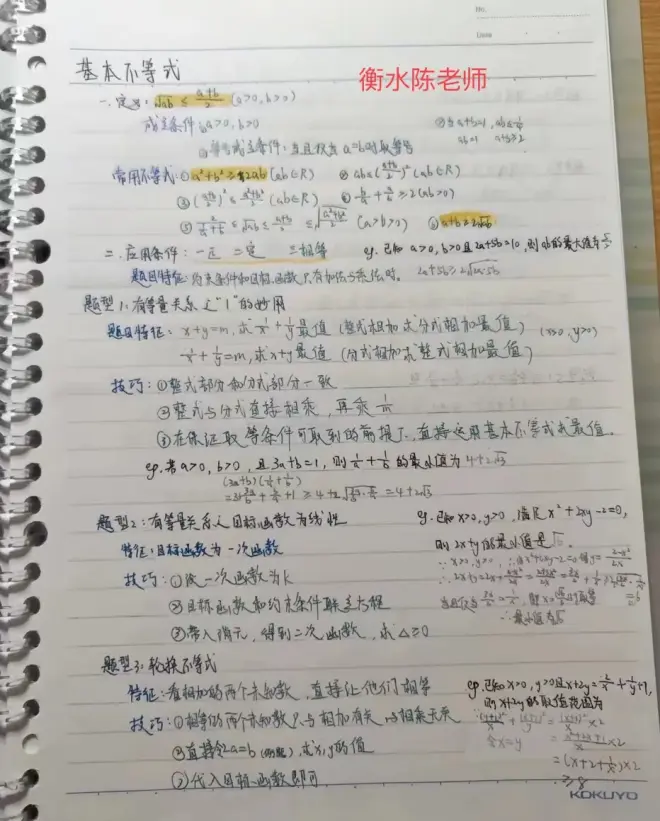 No.
Date
基本不等式
衡水陈老师
一、定义：√ab ≤ (a+b)/2 (a>0, b>0)
成立条件：a>0, b>0
①等号成立条件：当且仅当 a=b时取等号
常用不等式：① a²+b² ≥ 2ab (a,b∈R) ② ab≤((a+b)/2)² (a,b∈R)
③ ((a+b)/2)² ≤ (a²+b²)/2 (a,b∈R) ④ b/a + a/b ≥2 (ab>0)
≤ √ab ≤ (a+b)/2 ≤ √((a²+b²)/2) (a>b>0) ⑥ a+b≥2√ab
二、应用条件：一正 二定 三相等 eg. 已知 a>0, b>0且2a+5b=10, 则ab的最大值为
题目特征：约束条件和目标函数只有加法与乘法时. 2a+5b≥2√2a·5b
题型1：有等量关系之"1"的妙用
题目特征：x+y=m, 求1/x+1/y最值 (整式相加求分式相加最值) (x>0, y>0)
1/x+1/y=m, 求x+y最值 (分式相加求整式相加最值)
技巧：①整式部分和分式部分一致
②整式与分式直接相乘，再乘1/m
③在保证取等条件可取到的前提下，直接运用基本不等式求最值。
eg. 若a>0, b>0, 且3a+b=1, 则1/a+1/b的最小值为4+2√3
(3a+b)(1/a+1/b)
=3+3a/b+b/a+1 ≥ 4+2√(3a/b·b/a) =4+2√3
题型2：有等量关系之目标函数为线性 eg. 已知x>0, y>0, 满足x²+2xy-2=0,
特征：目标函数为一次函数 则2x+y的最小值是√6.
技巧：①设一次函数为k
②目标函数和约束条件联立方程
③带入消元，得到二次函数，求△≥0
∴最小值为√6
题型3：轮换不等式
特征：看相加的两个未知数，直接让他们相等 eg. 已知x>0, y>0且x+2y=2/x+1/y+1,
技巧：①相等的两个未知数只与相加有关，与相乘无关 则x+2y的取值范围为
②直接令2a=b, 求x, y的值 令x=y
=(x+2+1/x)×2
③代入目标函数即可 ≥8
KOKUYO